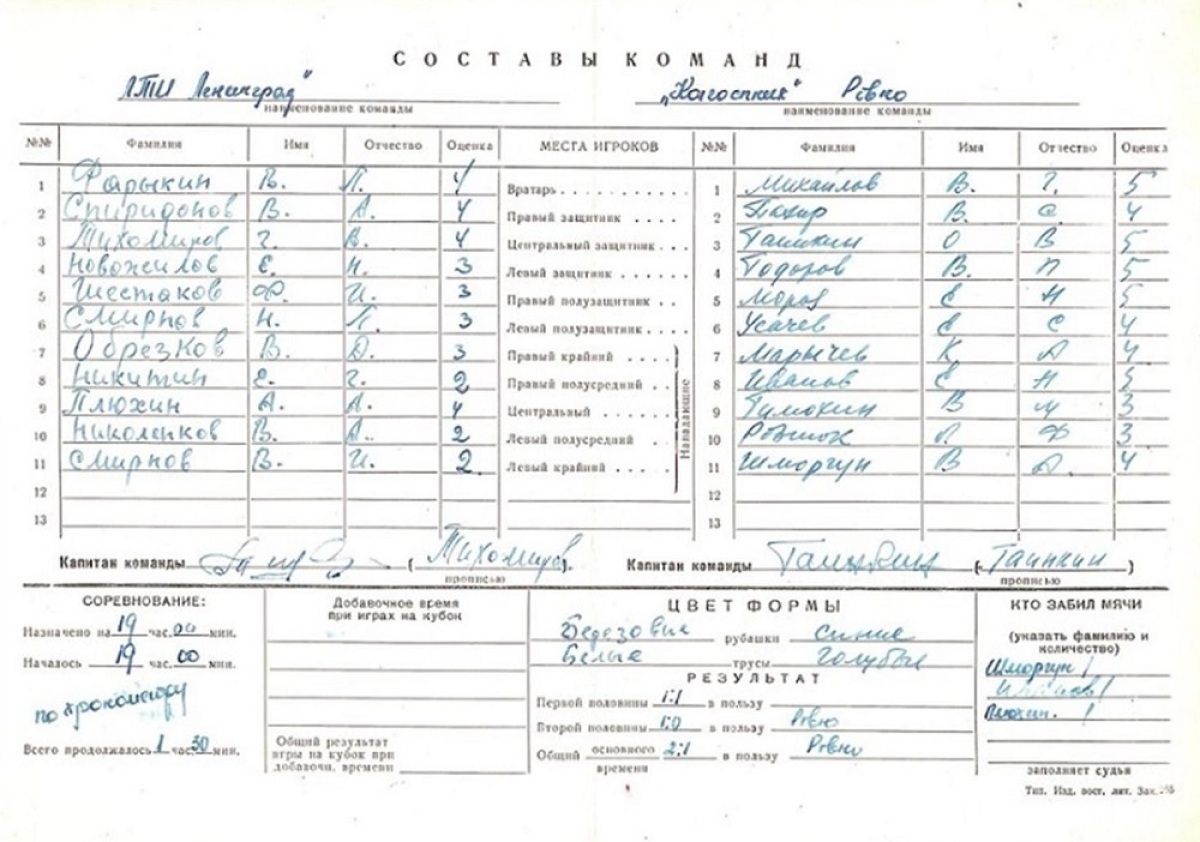 СОСТАВЫ КОМАНД
ЛТИ Ленинград" „Колгоспник" Ровно
наименование команды наименование команды
№№ Фамилия Имя Отчество Оценка МЕСТА ИГРОКОВ №№ Фамилия Имя Отчество Оценка
1 Фарыкин В. Л. 4 Вратарь 1 Михайлов В. Г. 5
2 Спиридонов В. А. 4 Правый защитник 2 В. С. 4
3 Тихомиров Г. В. 4 Центральный защитник 3 Ташкин О В 5
4 Новожилов Е. Н. 3 Левый защитник 4 Тодоров В. П 5
5 Шестаков Ф. И. 3 Правый полузащитник 5 Мороз Е Н 5
6 Смирнов Н. П. 3 Левый полузащитник 6 Усачев Е С 4
7 Обрезков В. Д. 3 Правый крайний 7 Марычев К А 4
8 Никитин Е. Г. 2 Правый полусредний 8 Иванов Е Н 5
9 Плюхин А. А. 4 Центральный 9 Тимохин В И 3
10 Николенков В. А. 2 Левый полусредний 10 Ровшок Л Ф 3
11 Смирнов В. И. 2 Левый крайний 11 Шморгун В А. 4
12 12
13 13
Нападающие
Капитан команды (Тихомиров). Капитан команды (Ташкин)
прописью прописью
СОРЕВНОВАНИЕ:
Назначено на 19 час. 00 мин.
Началось 19 час. 00 мин.
по хронометру
Всего продолжалось 1 час. 30 мин.
Добавочное время
при играх на кубок
Общий результат
игры на кубок при
добавочн. времени
ЦВЕТ ФОРМЫ
Березовые рубашки синие
Белые трусы голубые
РЕЗУЛЬТАТ
Первой половины 1:1 в пользу
Второй половины 1:0 в пользу Ровно
Общий основного 2:1 в пользу Ровно
времени
КТО ЗАБИЛ МЯЧИ
(указать фамилию и
количество)
Шморгун 1
Иванов 1
Плюхин. 1
заполняет судья
Тип. Изд. вост. лит. Зак.